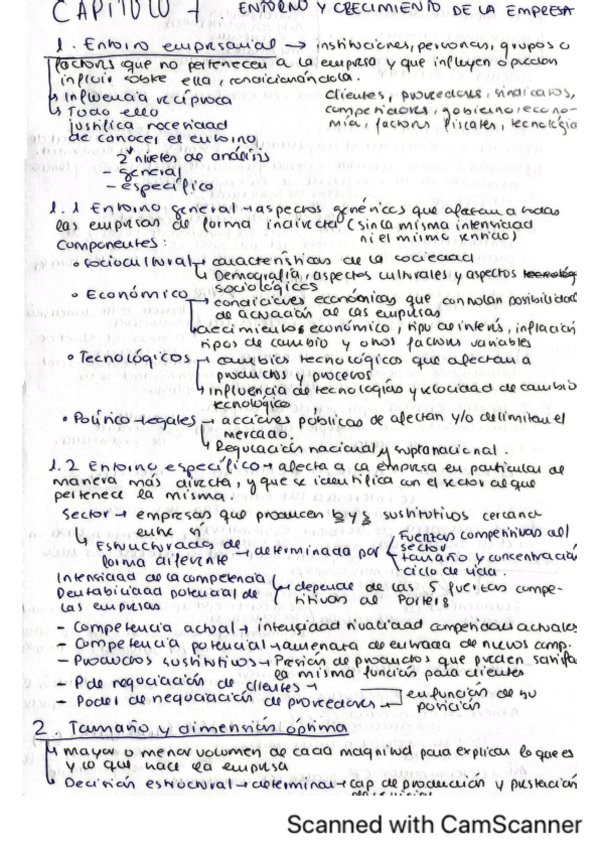 CAPÍTULO 7. ENTORNO Y CRECIMIENTO DE LA EMPRESA
1. Entorno empresarial → instituciones, personas, grupos o
factores que no pertenecen a la empresa y que influyen o pueden
influir sobre ella, condicionándola.
↳ Influencia recíproca
clientes, proveedores, sindicatos,
↳ Todo ello
competidores, gobierno, econo-
justifica necesidad
mía, factores fiscales, tecnología
de conocer el entorno
2 niveles de análisis
- general
- específico
1.1 Entorno general → aspectos genéricos que afectan a todas
las empresas de forma indirecta (sin la misma intensidad
ni el mismo sentido)
Componentes:
• sociocultural → características de la sociedad
↳ Demografía, aspectos culturales y aspectos
sociológicos
• Económico → condiciones económicas que controlan posibilidad
de actuación de las empresas
↳ crecimiento económico, tipo de interés, inflación
tipos de cambio y otros factores variables
• Tecnológicos → cambios tecnológicos que afectan a
productos y procesos
↳ influencia de tecnologías y velocidad de cambio
tecnológico
• Político-legales → acciones públicas de afectan y/o delimitan el
mercado.
↳ Regulación nacional y supranacional.
1.2 Entorno específico → afecta a la empresa en particular de
manera más directa, y que se identifica con el sector al que
pertenece la misma.
Sector → empresas que producen b y s sustitutivos cercanos
entre sí
↳ Estructurados de
forma diferente → determinada por
Fuerzas competitivas del
sector
tamaño y concentración
ciclo de vida.
Intensidad de la competencia
Rentabilidad potencial de
las empresas
depende de las 5 fuerzas compe-
titivas de Porter
- Competencia actual → intensidad rivalidad competidores actuales
- Competencia potencial → amenaza de entrada de nuevos comp.
- Productos sustitutivos → Presión de productos que pueden satisfa
la misma función para clientes
- P de negociación de clientes →
- Poder de negociación de proveedores →
en función de su
posición
2. Tamaño y dimensión óptima
↳ mayor o menor volumen de cada magnitud para explicar lo que es
y lo que hace la empresa
↳ Decisión estructural → determinar → cap de producción y prestación
Scanned with CamScanner